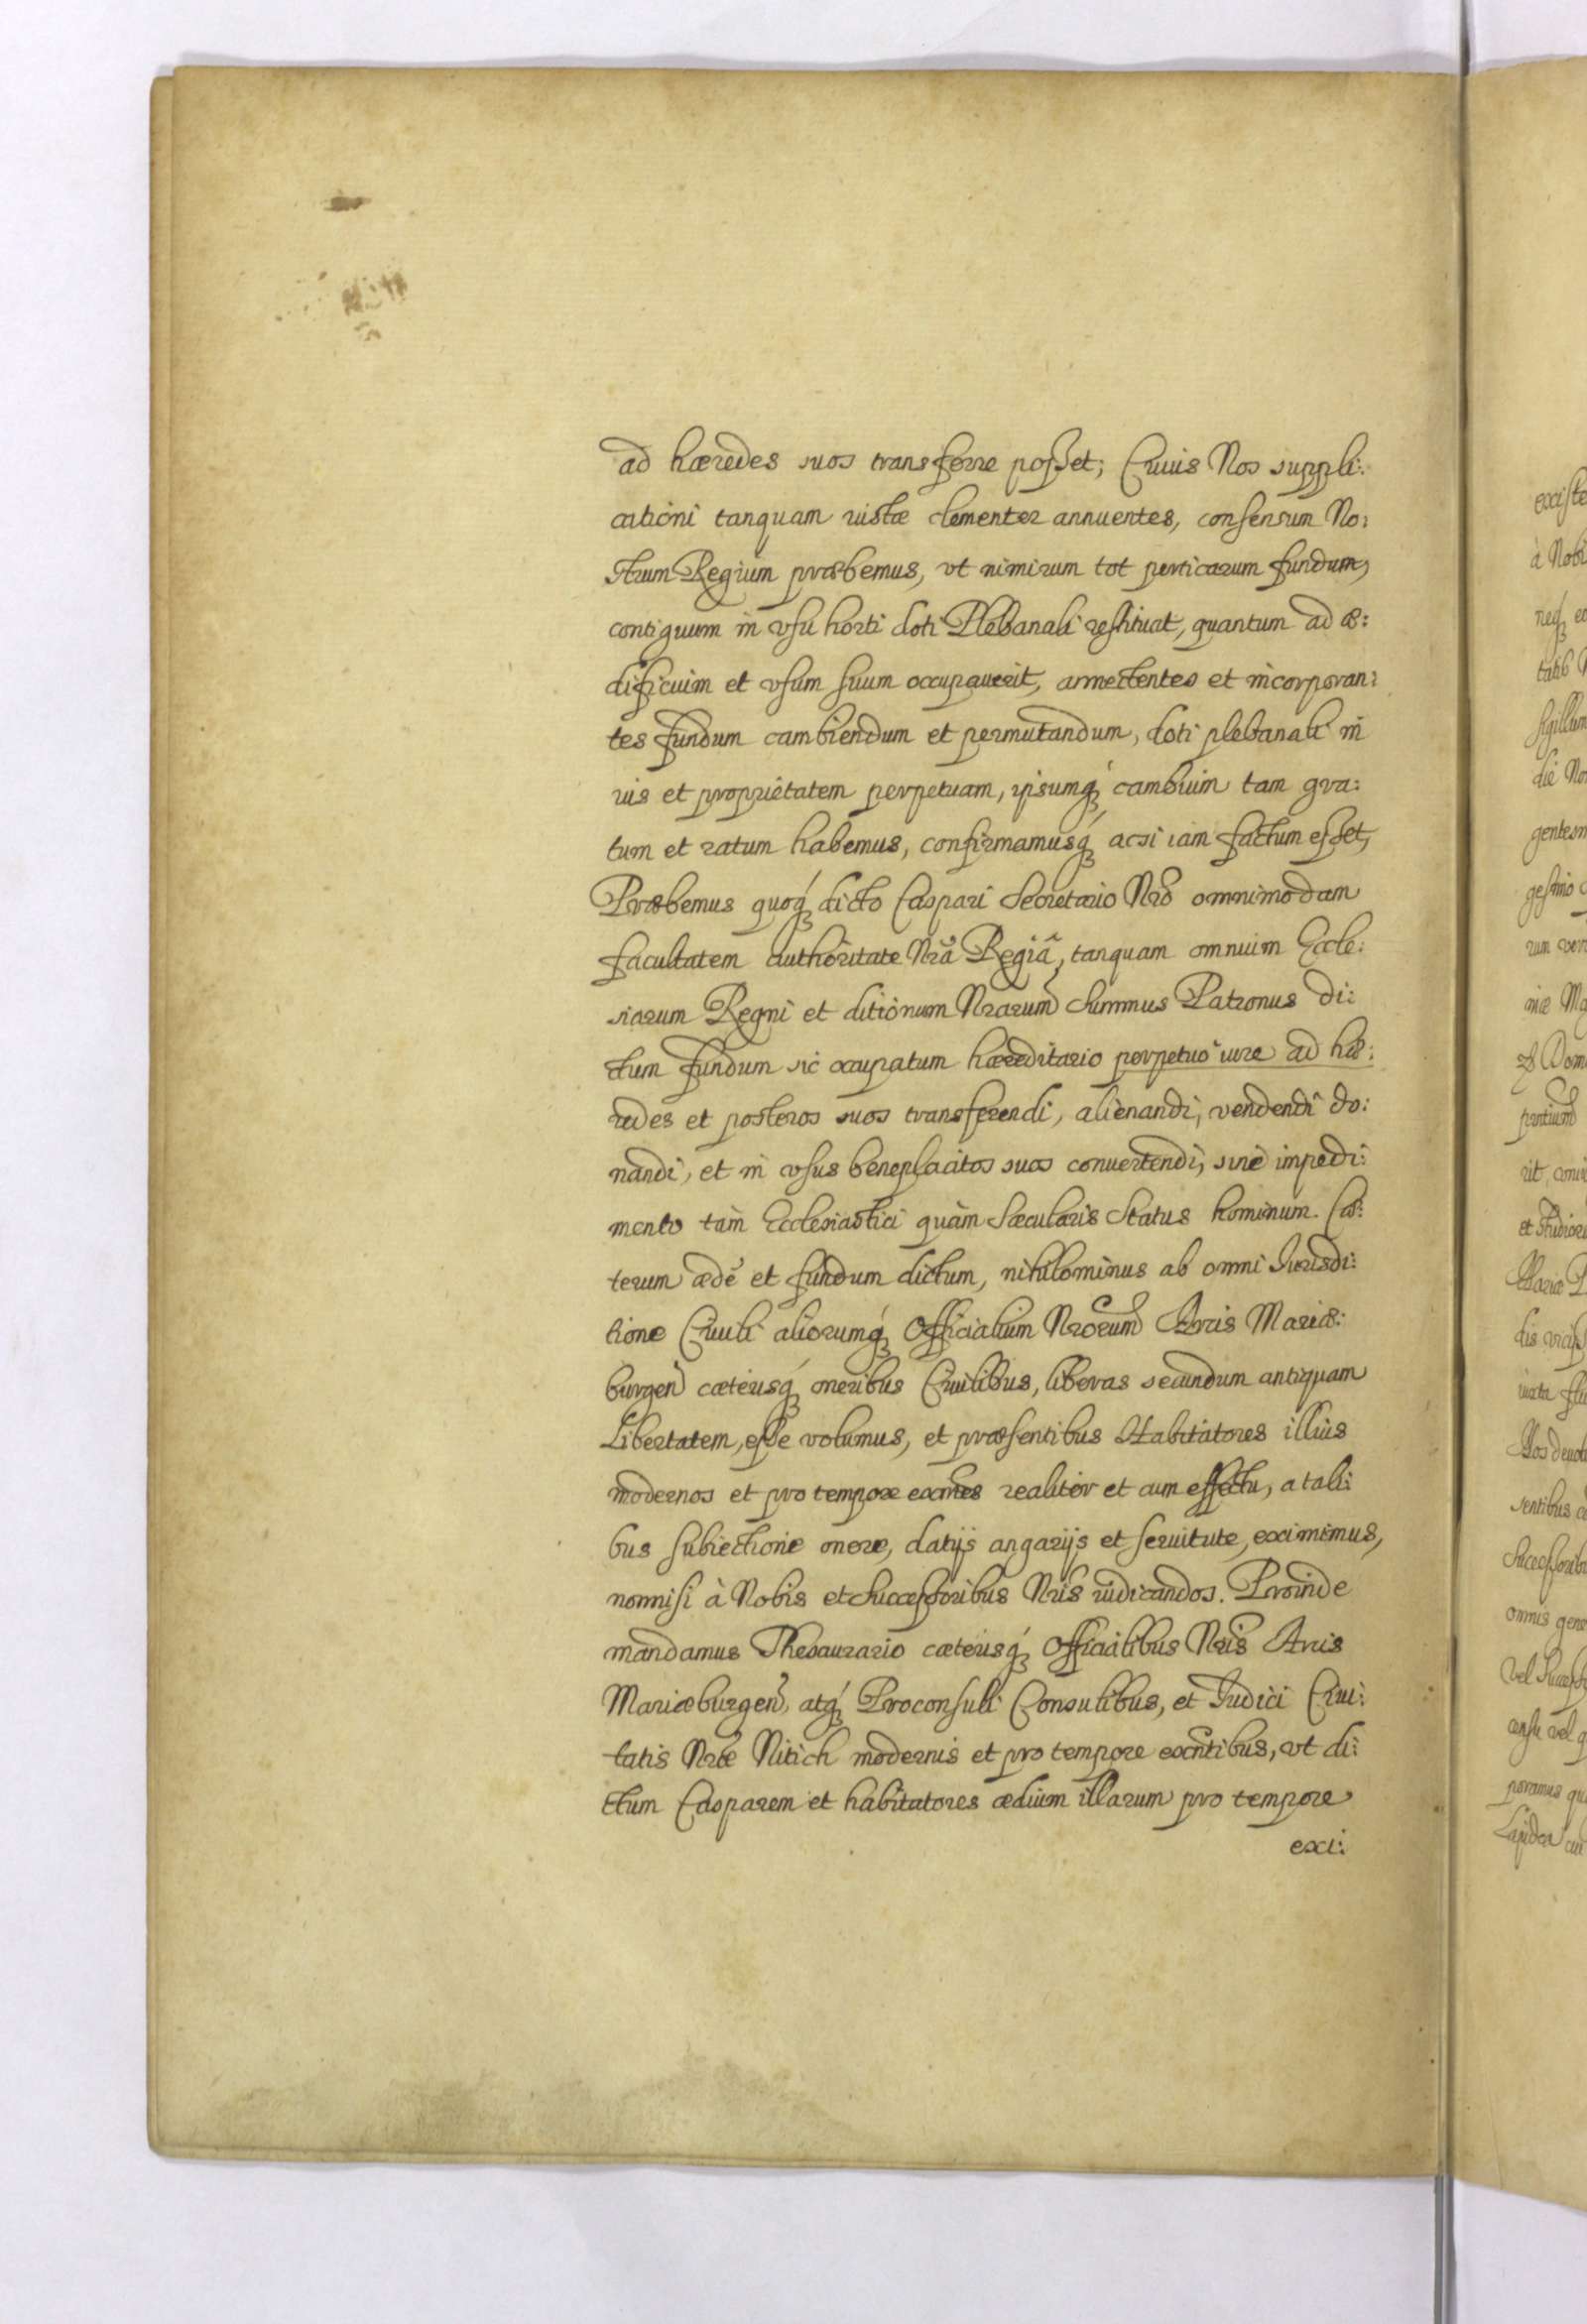 ad hæredes suos transferre posset; Cuius Nos suppli:
cationi tanquam iustæ clementer annuentes, consensum No:
strum Regium præbemus, vt nimirum tot perticarum fundum,
contiguum in vsu horti doti Plebanali restituat, quantum ad æ:
dificium et vsum suum occupauerit, annectentes et incorporan:
tes fundum cambiendum et permutandum, doti plebanali in
ius et proprietatem perpetuam, ipsumq́ cambium tam gra:
tum et ratum habemus, confirmamusq́ acsi iam factum esset,
Præbemus quoq́ dicto Caspari Secretario Nrõ omnimodam
facultatem authoritate Nrã Regiâ, tanquam omnium Eccle:
siarum Regni et ditionum Nrarum Summus Patronus di:
ctum fundum sic occupatum hæreditario perpetuo iure ad hæ:
redes et posteros suos transferendi, alienandi, vendendi do:
nandi, et in vsus beneplacitos suos conuertendi, sine impedi:
mento tàm Ecclesiastici quàm Sæcularis Status hominum. Cæ:
terum ædẽ et fundum dictum, nihilominus ab omni Iurisdi:
tione Ciuili aliorumq́ Officialium Nrorum Arcis Mariæ:
burgen̄ cæterisq́ oneribus Ciuilibus, liberas secundum antiquam
Libertatem, esse volumus, et præsentibus Habitatores illius
modernos et pro tempore exñtes realiter et cum effectu, a tali:
bus subiectione onere, datijs angarijs et seruitute, eximimus,
nonnisi à Nobis et Successoribus Nris iudicandos. Proinde
mandamus Thesaurario cæterisq́ Officialibus Nris Arcis
Mariæburgen̄, atq́ Proconsuli Consulibus, et Iudici Ciui:
tatis Nræ Nitich modernis et pro tempore exñtibus, vt di:
ctum Casparem et habitatores ædium illarum pro tempore
exi: